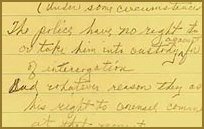 (Under some circumstances
The police have no right to
or take him into custody
against
for
of interrogation
And whatever reason they
his right to counsel comm
at that moment